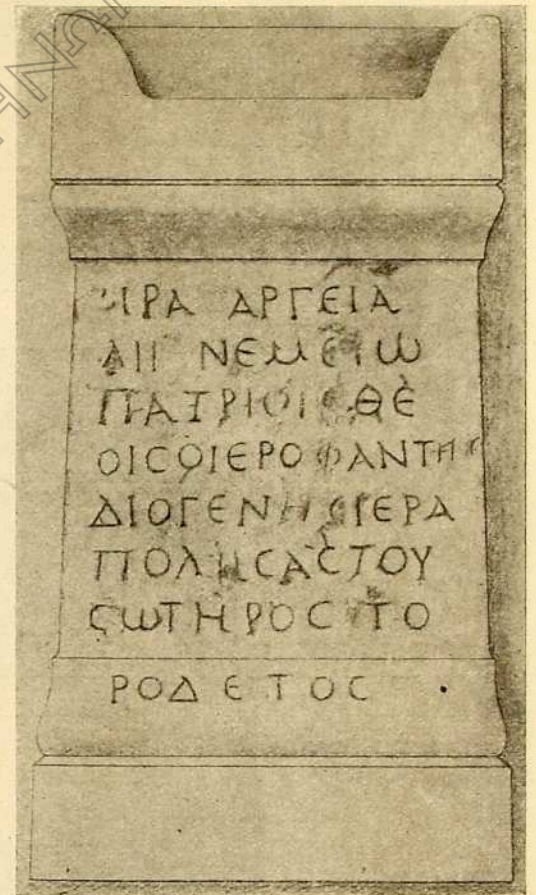 ΗΡΑ ΑΡΓΕΙΑ
ΔΙΙ ΝΕΜΕΙΩ
ΠΑΤΡΙΟΙϹ ΘΕ
ΟΙϹ Ο ΙΕΡΟΦΑΝΤΗϹ
ΔΙΟΓΕΝΗϹ ΙΕΡΑ
ΠΟΛΗϹΑϹ ΤΟΥ
ϹΩΤΗΡΟϹ ΤΟ
ΡΟΔ ΕΤΟϹ